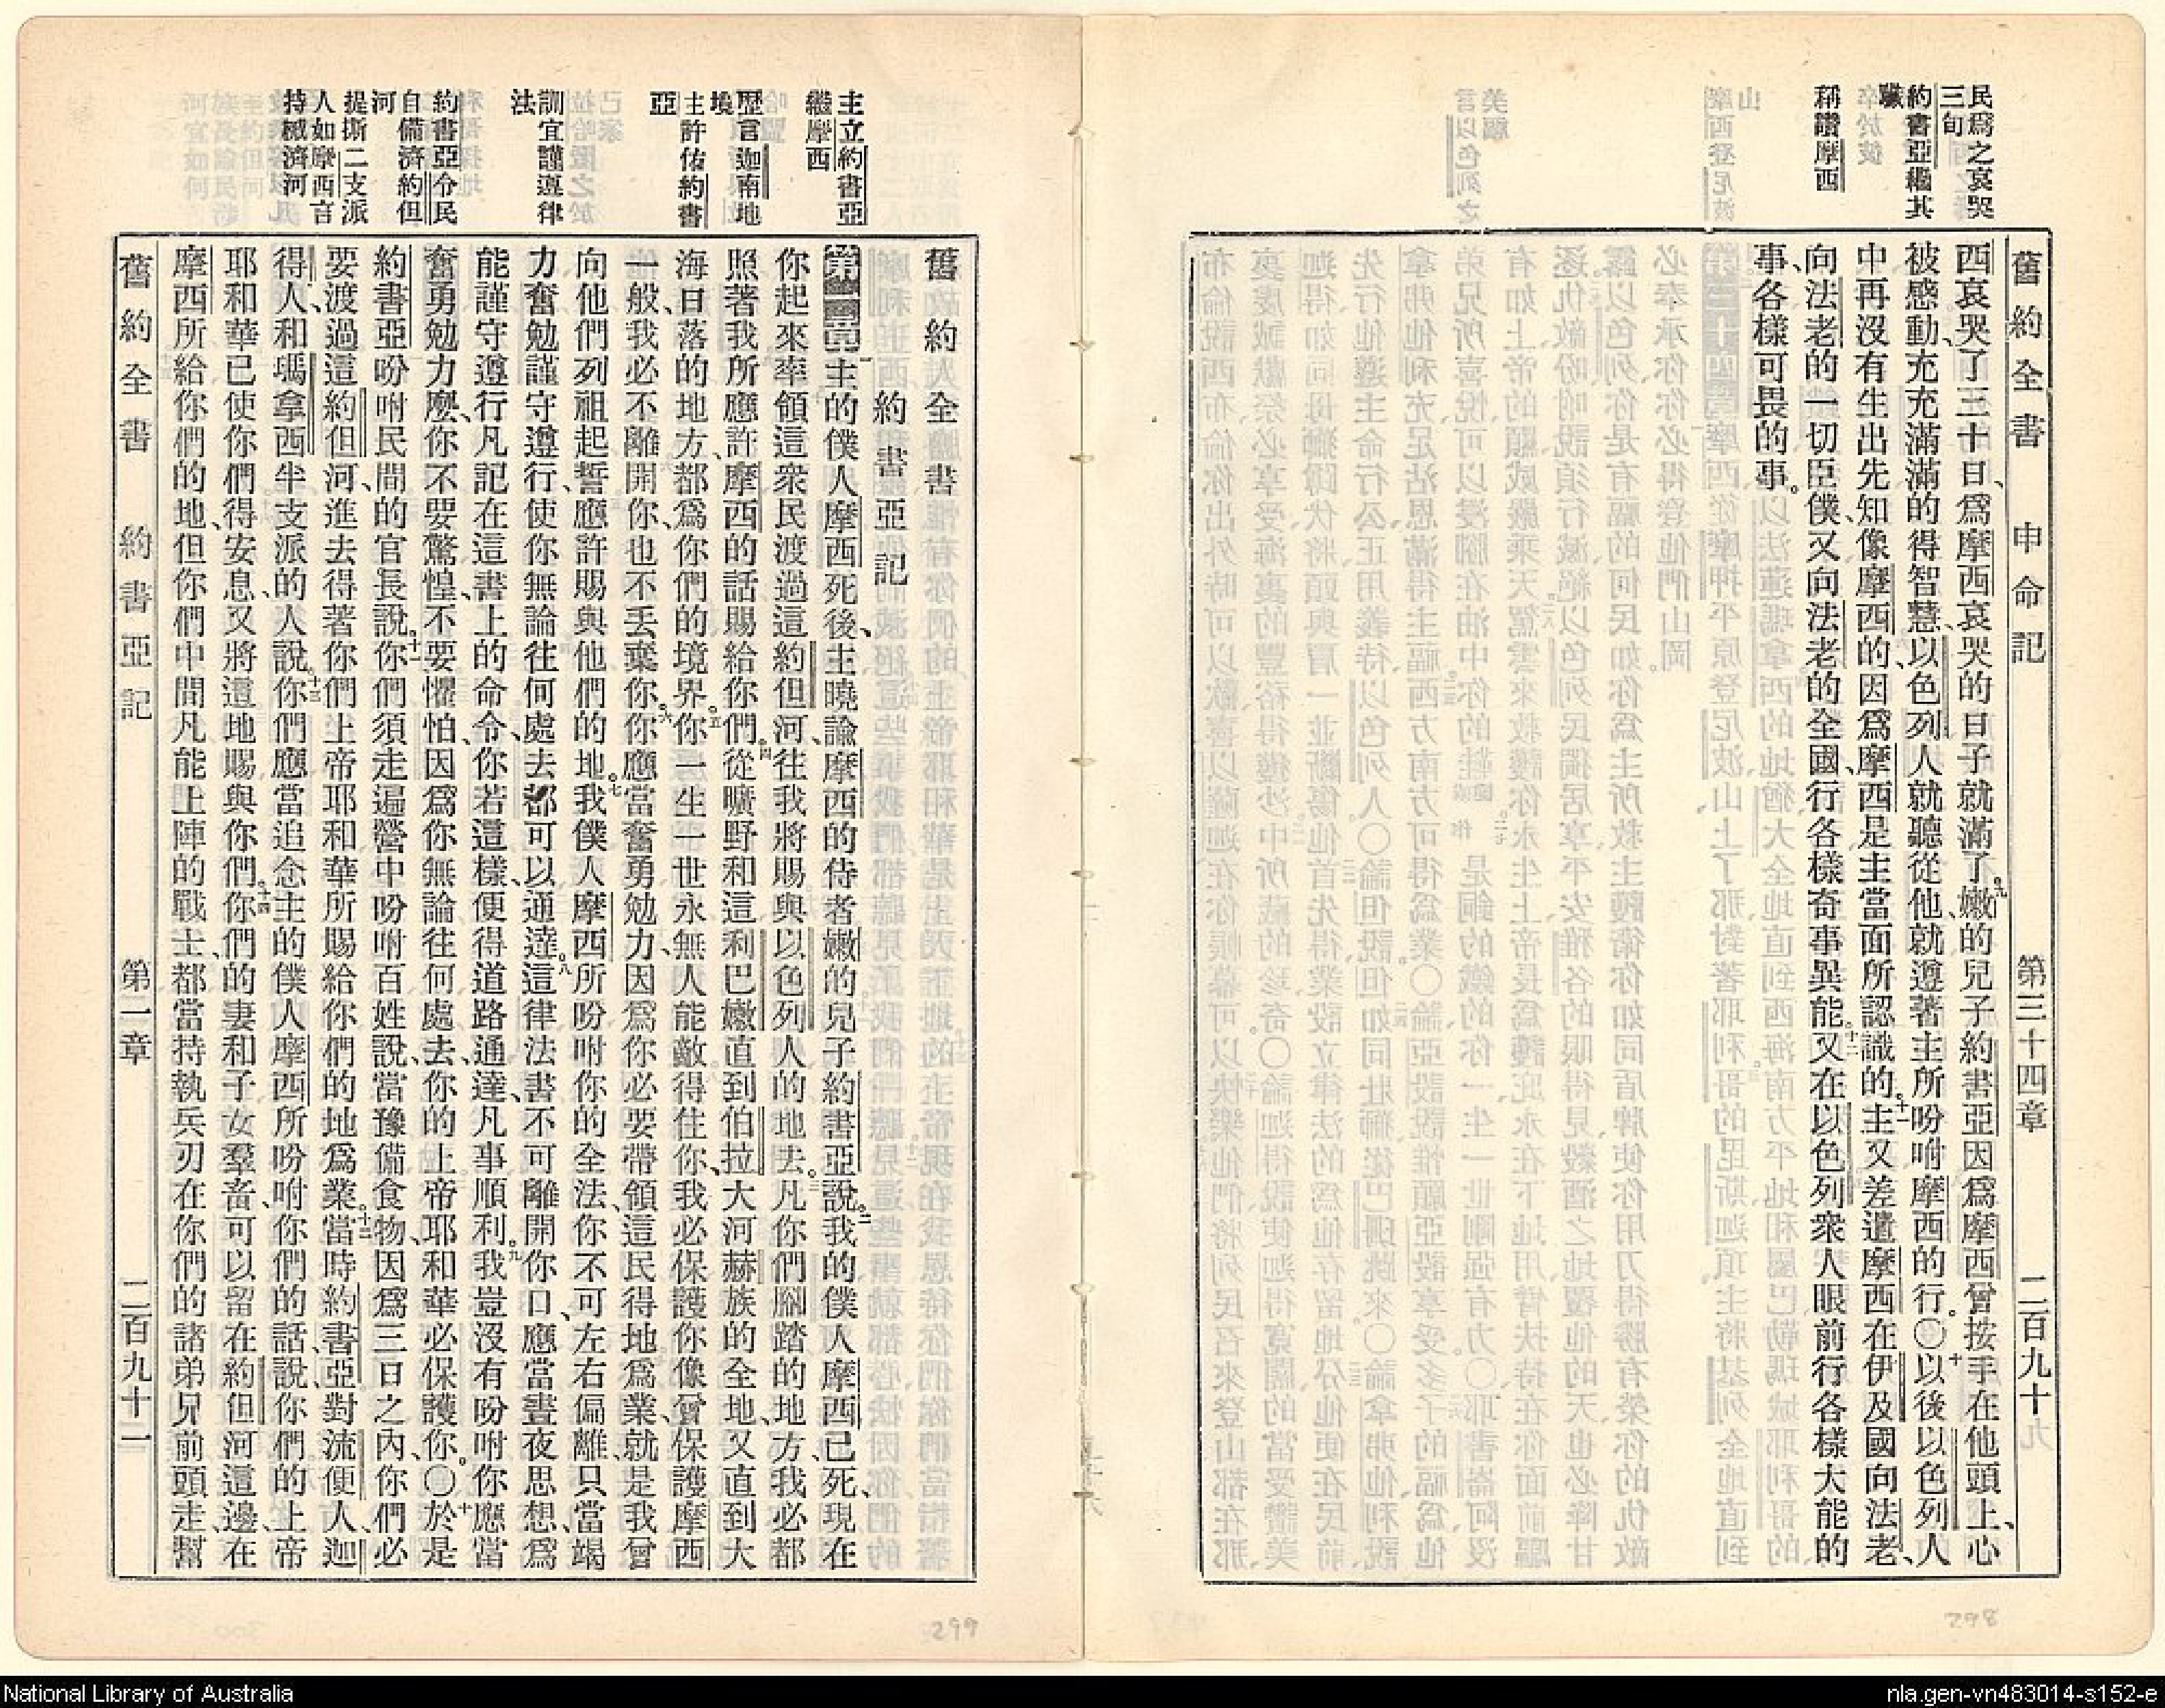 舊約全書　申命記　第三十四章　二百九十
民爲之哀哭
三旬
約書亞繼其
職
稱讚摩西
西哀哭了三十日、爲摩西哀哭的日子就滿了。九嫩的兒子約書亞因爲摩西曾按手在他頭上、心
被感動、充充滿滿的得智慧、以色列人就聽從他、就遵著主所吩咐摩西的行。〇十以後以色列人
中再沒有生出先知像摩西的、因爲摩西是主當面所認識的。十一主又差遣摩西在伊及國向法老、
向法老的一切臣僕、又向法老的全國、行各樣奇事異能。十二又在以色列衆人眼前行各樣大能的
事、各樣可畏的事。
298
主立約書亞
繼摩西
歷言迦南地
境
主許佑約書
亞
訓宜謹遵律
法
約書亞令民
自備濟約但
河
提撕二支派
人如摩西言
持械濟河
舊約全書
約書亞記
第一章一主的僕人摩西死後、主曉諭摩西的侍者嫩的兒子約書亞說。二我的僕人摩西已死、現在
你起來率領這衆民渡過這約但河、往我將賜與以色列人的地去。三凡你們腳踏的地方、我必都
照著我所應許摩西的話賜給你們。四從曠野和這利巴嫩直到伯拉大河、赫族的全地、又直到大
海日落的地方、都爲你們的境界。五你一生一世永無人能敵得住你、我必保護你像曾保護摩西
一般、我必不離開你、也不丟棄你。六你應當奮勇勉力、因爲你必要帶領這民得地爲業、就是我曾
向他們列祖起誓應許賜與他們的地。七我僕人摩西所吩咐你的全法、你不可左右偏離、只當竭
力奮勉謹守遵行、使你無論往何處去、都可以通達。八這律法書不可離開你口、應當晝夜思想、爲
能謹守遵行凡記在這書上的命令、你若這樣、便得道路通達、凡事順利。九我豈沒有吩咐你應當
奮勇勉力麼、你不要驚惶、不要懼怕、因爲你無論往何處去、你的上帝耶和華必保護你。〇十於是
約書亞吩咐民間的官長說。十一你們須走遍營中吩咐百姓說、當豫備食物、因爲三日之內、你們必
要渡過這約但河、進去得著你們上帝耶和華所賜給你們的地爲業。十二當時約書亞對流便人、迦
得人、和瑪拿西半支派的人說。十三你們應當追念主的僕人摩西所吩咐你們的話說、你們的上帝
耶和華已使你們得安息、又將這地賜與你們。十四你們的妻和子女羣畜、可以留在約但河這邊、在
摩西所給你們的地、但你們中間凡能上陣的戰士、都當持執兵刃在你們的諸弟兄前頭走、幫
舊約全書　約書亞記　第一章　二百九十一
299
National Library of Australia
nla.gen-vn483014-s152-e